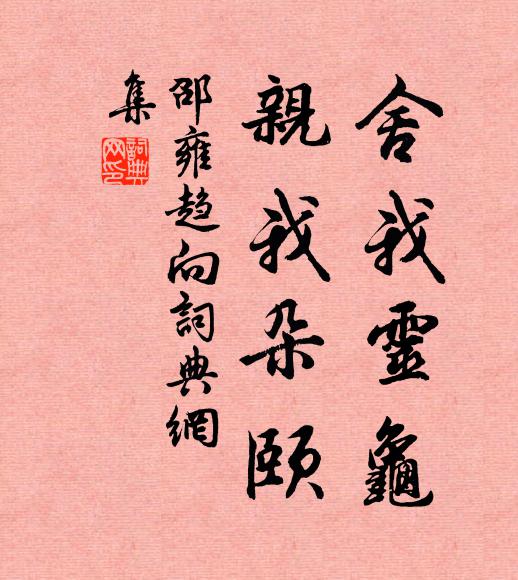 舍我靈龜
親我朵頤
邵雍趋向詞典網
集
詞典网印